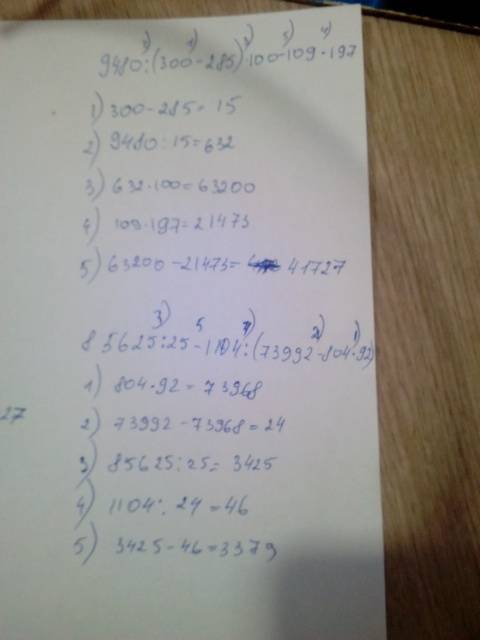 3) 1) 3) 5) 4)
9480:(300-285)·100-109·197
1) 300-285=15
2) 9480:15=632
3) 632·100=63200
4) 109·197=21473
5) 63200-21473= 41727
3) 5 4) 2) 1)
85625:25-1104:(73992-804·92)
1) 804·92=73968
2) 73992-73968=24
27
3) 85625:25=3425
4) 1104:24=46
5) 3425-46=3379